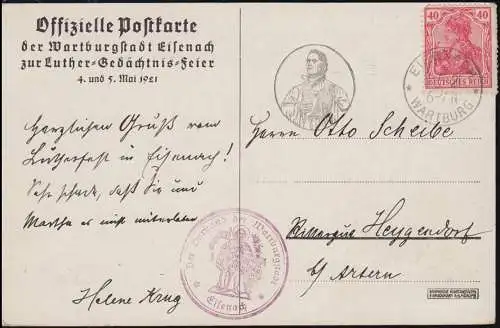 Offizielle Postkarte
der Wartburgstadt Eisenach
zur Luther-Gedächtnis-Feier
4. und 5. Mai 1921
Herzlichen Gruß vom
Lutherfest in Eisenach!
Sehr schade, daß Sie und
Martha es nicht miterleben
Helene Krug
40 40
DEUTSCHES REICH
WARTBURG
Herrn Otto Scheibe
Rittergut Heygendorf
b/ Artern
Der Vorstand der Wartburgstadt
Eisenach